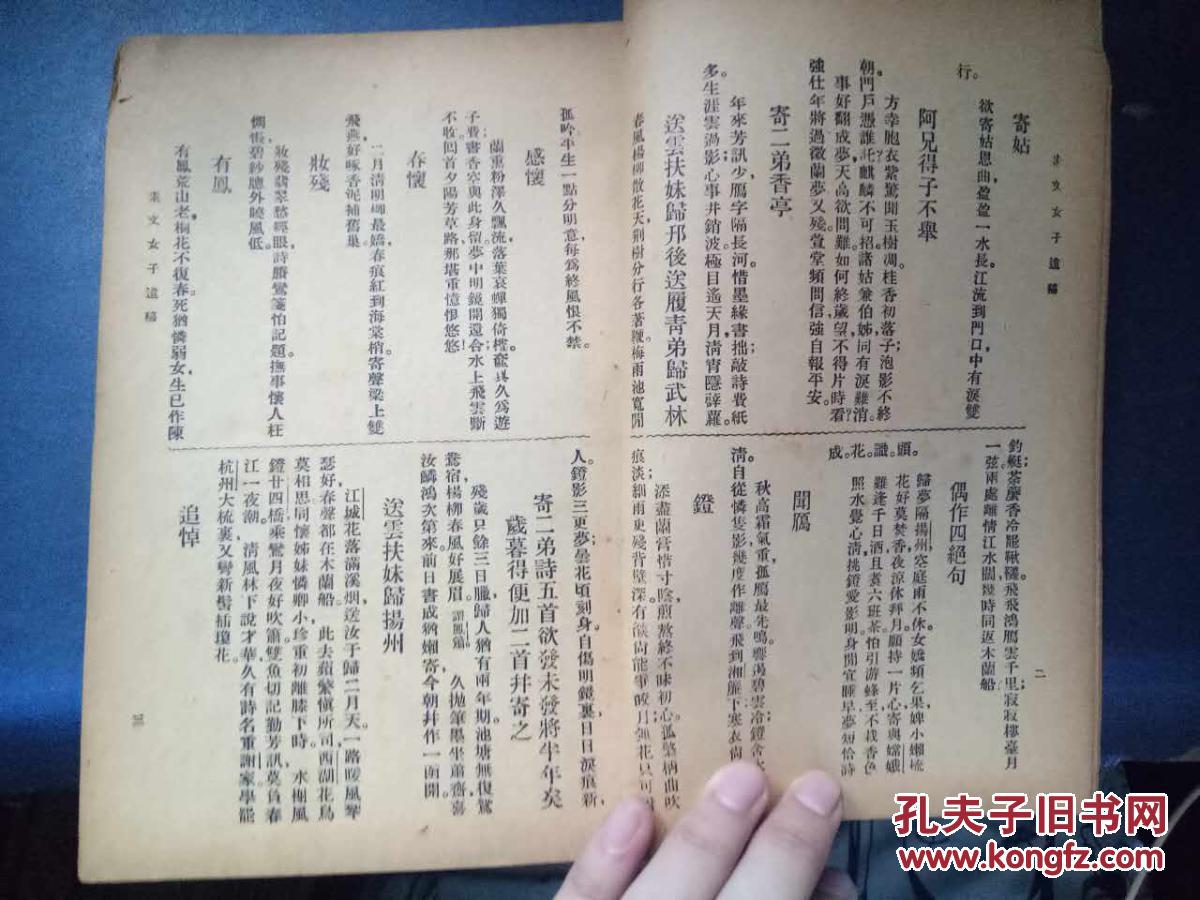 素文女子遺稿
二
寄姑
欲寄姑恩曲盈盈一水長江流到門口中有淚雙
行。
阿兄得子不舉
方幸胞衣紫驚聞玉樹凋桂香初落子泡影不終
朝門戶憑誰託麒麟不可招諸姑兼伯姊同有淚難消
事好翻成夢天高欲問難如何終歲望不得片時看
強仕年將過徵蘭夢又殘萱堂頻問信強自報平安。
寄二弟香亭
年來芳訊少鴈字隔長河惜墨緣書拙敲詩費紙
多生涯雲過影心事井銷波極目遙天月清宵隱薜蘿。
送雲扶妹歸邗後送履青弟歸武林
春風楊柳散花天荆樹分行各著鞭梅雨池寬閒
釣艇荼䕷香冷罷鞦韆飛飛鴻鴈雲千里寂寂樓臺月
一弦兩處離情江水闊幾時同返木蘭船
偶作四絕句
歸夢隔揚州空庭雨不休女嬌頻乞果婢小懶梳
頭。
花好莫焚香夜涼休拜月願持一片心寄與嫦娥
識。
雖逢千日酒且煮六班茶怕引游蜂至不栽香色
花。
照水覺心清挑鐙愛影明身閒宜睡早夢短恰詩
成。
聞鴈
秋高霜氣重孤鴈最先鳴響遏碧雲冷鐙含
清自從憐隻影幾度作離聲飛到湘簾下寒衣尚
鐙
添盡蘭膏惜寸陰煎熬終不昧初心孤檠柄曲吹
痕淡細雨更殘背壁深有燄尚能爭皎月無花只可
素文女子遺稿
三
孤吟半生一點分明意每爲終風恨不禁。
感懷
蘭重粉澤久飄流落葉哀蟬獨倚樓奩具久爲遊
子費書香空與此身留夢中明鏡開還合水上飛雲斷
不收囘首夕陽芳草路那堪重憶恨悠悠
春懷
二月清明柳最嬌春痕紅到海棠梢寄聲梁上雙
飛燕好啄香泥補舊巢
妝殘
妝殘翡翠愁經眼詩賸鸞箋怕記題撫事懷人枉
惆悵碧紗牕外曉風低。
有鳳
有鳳荒山老桐花不復春死猶憐弱女生已作陳
人。鐙影三更夢曇花頃刻身自傷明鏡裏日日淚痕新
寄二弟詩五首欲發未發將半年矣
歲暮得便加二首幷寄之
殘歲只餘三日臘歸人猶有兩年期池塘無復鴛
鴦宿楊柳春風好展眉
久拋筆墨坐蕭齋喜
汝鱗鴻次第來前日書成猶嬾寄今朝幷作一函開
送雲扶妹歸揚州
江城花落滿溪烟送汝于歸二月天一路暖風琴
瑟好春聲都在木蘭船
此去蘋蘩愼所司西湖花鳥
莫相思同懷姊妹憐卿小珍重初離膝下時。
水榭風
鐙廿四橋乘鸞月夜好吹簫雙魚切記勤芳訊莫負春
江一夜潮。
清風林下說才華久有時名重謝家學罷
杭州大梳裏又彎新髻插瓊花。
追悼
孔夫子旧书网
www.kongfz.com